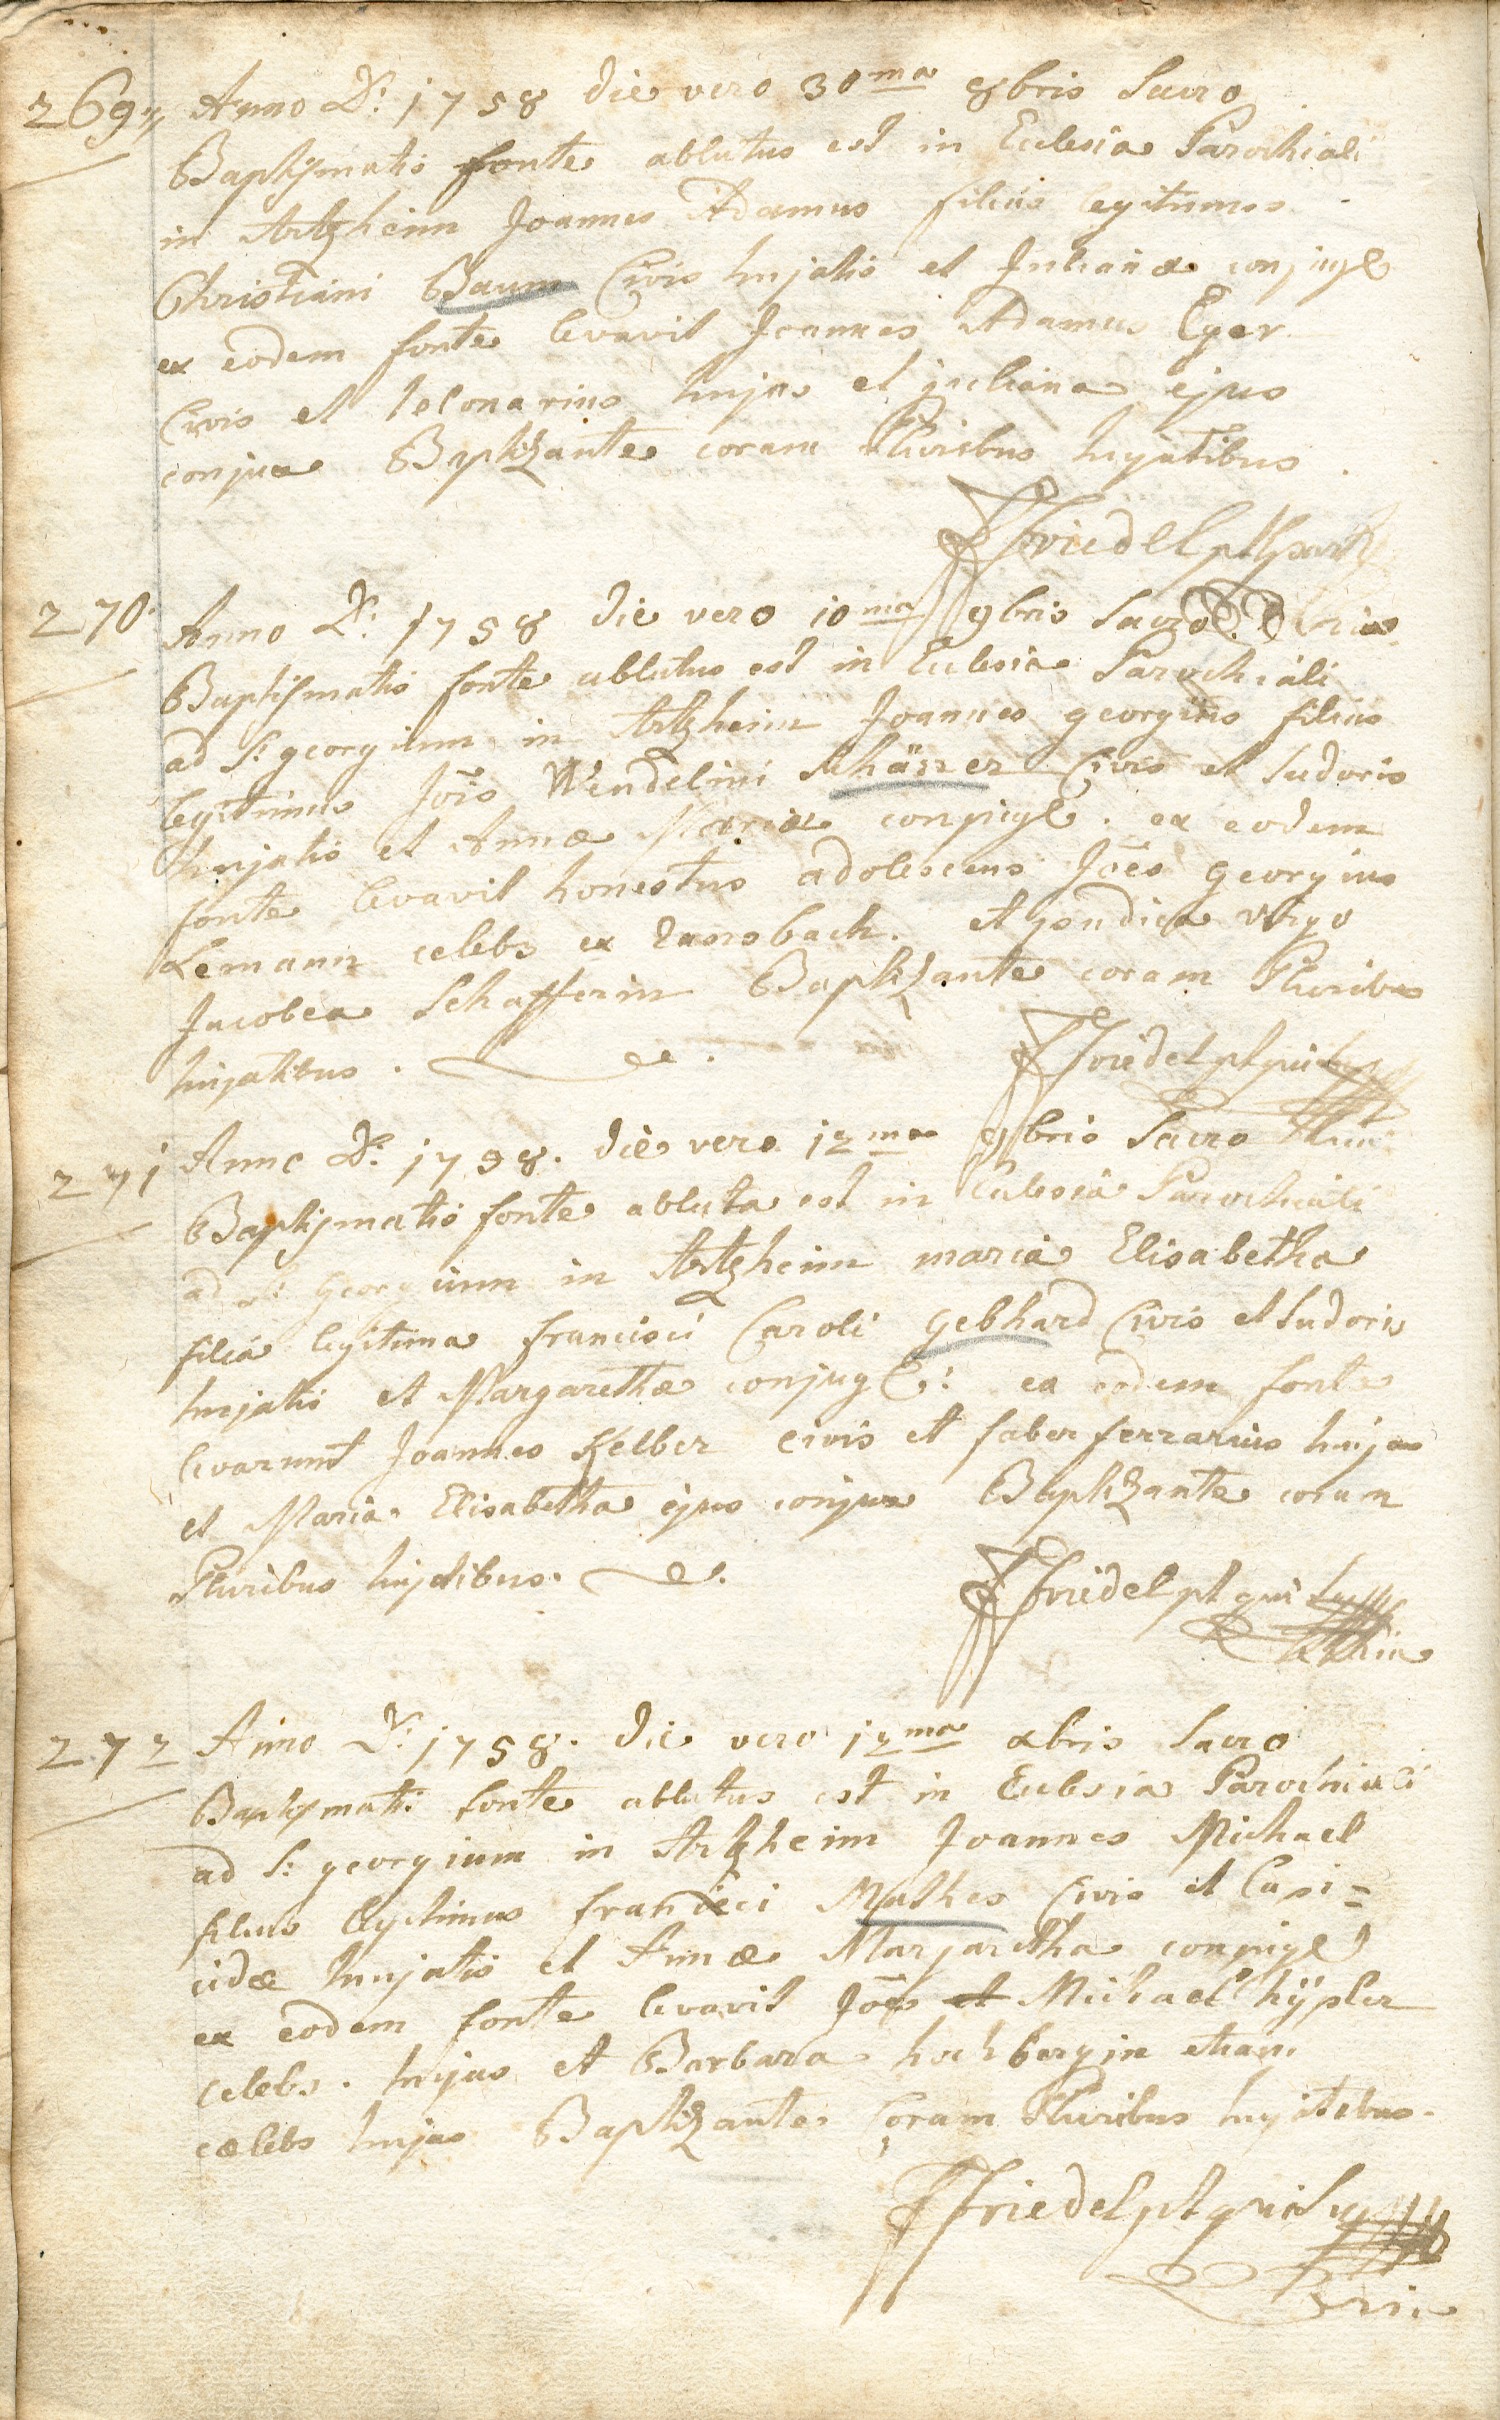 269 Anno D: 1758 die vero 30ma 8bris Sacro
Baptismatis fonte ablutus est in Eclesia Parochiali
in Artzheim Joannes Adamus filius legitimus
Christiani Baum Civis hujatis et Julianæ conjugū
ex eodem fonte levavit Joannes Adamus Eger
Civis et telonarius hujas et juliana ejus
conjux Baptizante coram Pluribus hujatibus.
Friedel pt
270. Anno D: 1758 die vero 10ma 9bris Sacro
Baptismatis fonte ablutus est in Eclesia Parochiali
ad S: georgium in Artzheim Joannes georgius filius
legitimus Jois Wendelini Schäffer Civis et Sudoris
hujatis et Annæ Mariæ conjugū. ex eodem
fonte levavit honestus adolescens Joes georgius
Lemann celebs ex et pudica virgo
Jacobea Schafferin Baptizante coram Pluribus
hujatibus.
Friedel pt qui
271 Anno D: 1758. die vero 12ma 9bris Sacro
Baptismatis fonte abluta est in Eclesia Parochiali
ad S: georgium in Artzheim maria Elisabetha
filia legitima francisci Caroli gebhard Civis et Sudoris
hujatis et Margarethæ conjugū: ex eodem fonte
levarunt Joannes Kelber civis et faber ferrarius hujas
et Maria Elisabetha ejus conjux Baptizante coram
Pluribus hujatibus.
Friedel pt qui
272 Anno D: 1758. die vero 12ma xbris Sacro
Baptismatis fonte ablutus est in Eclesia Parochiali
ad S: georgium in Artzheim Joannes Michael
filius legitimus francisci Mathes Civis et Casi=
cidæ hujatis et Annæ Margaretha conjugū
ex eodem fonte levavit Joes et Michael hÿpler
celebs. hujus et Barbara hochbergin etiam
cælebs hujas Baptizante Coram Pluribus hujatibus.
Friedel pt qui